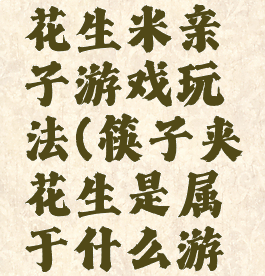 花生米亲
子游戏玩
法(筷子夹
花生是属
于什么游